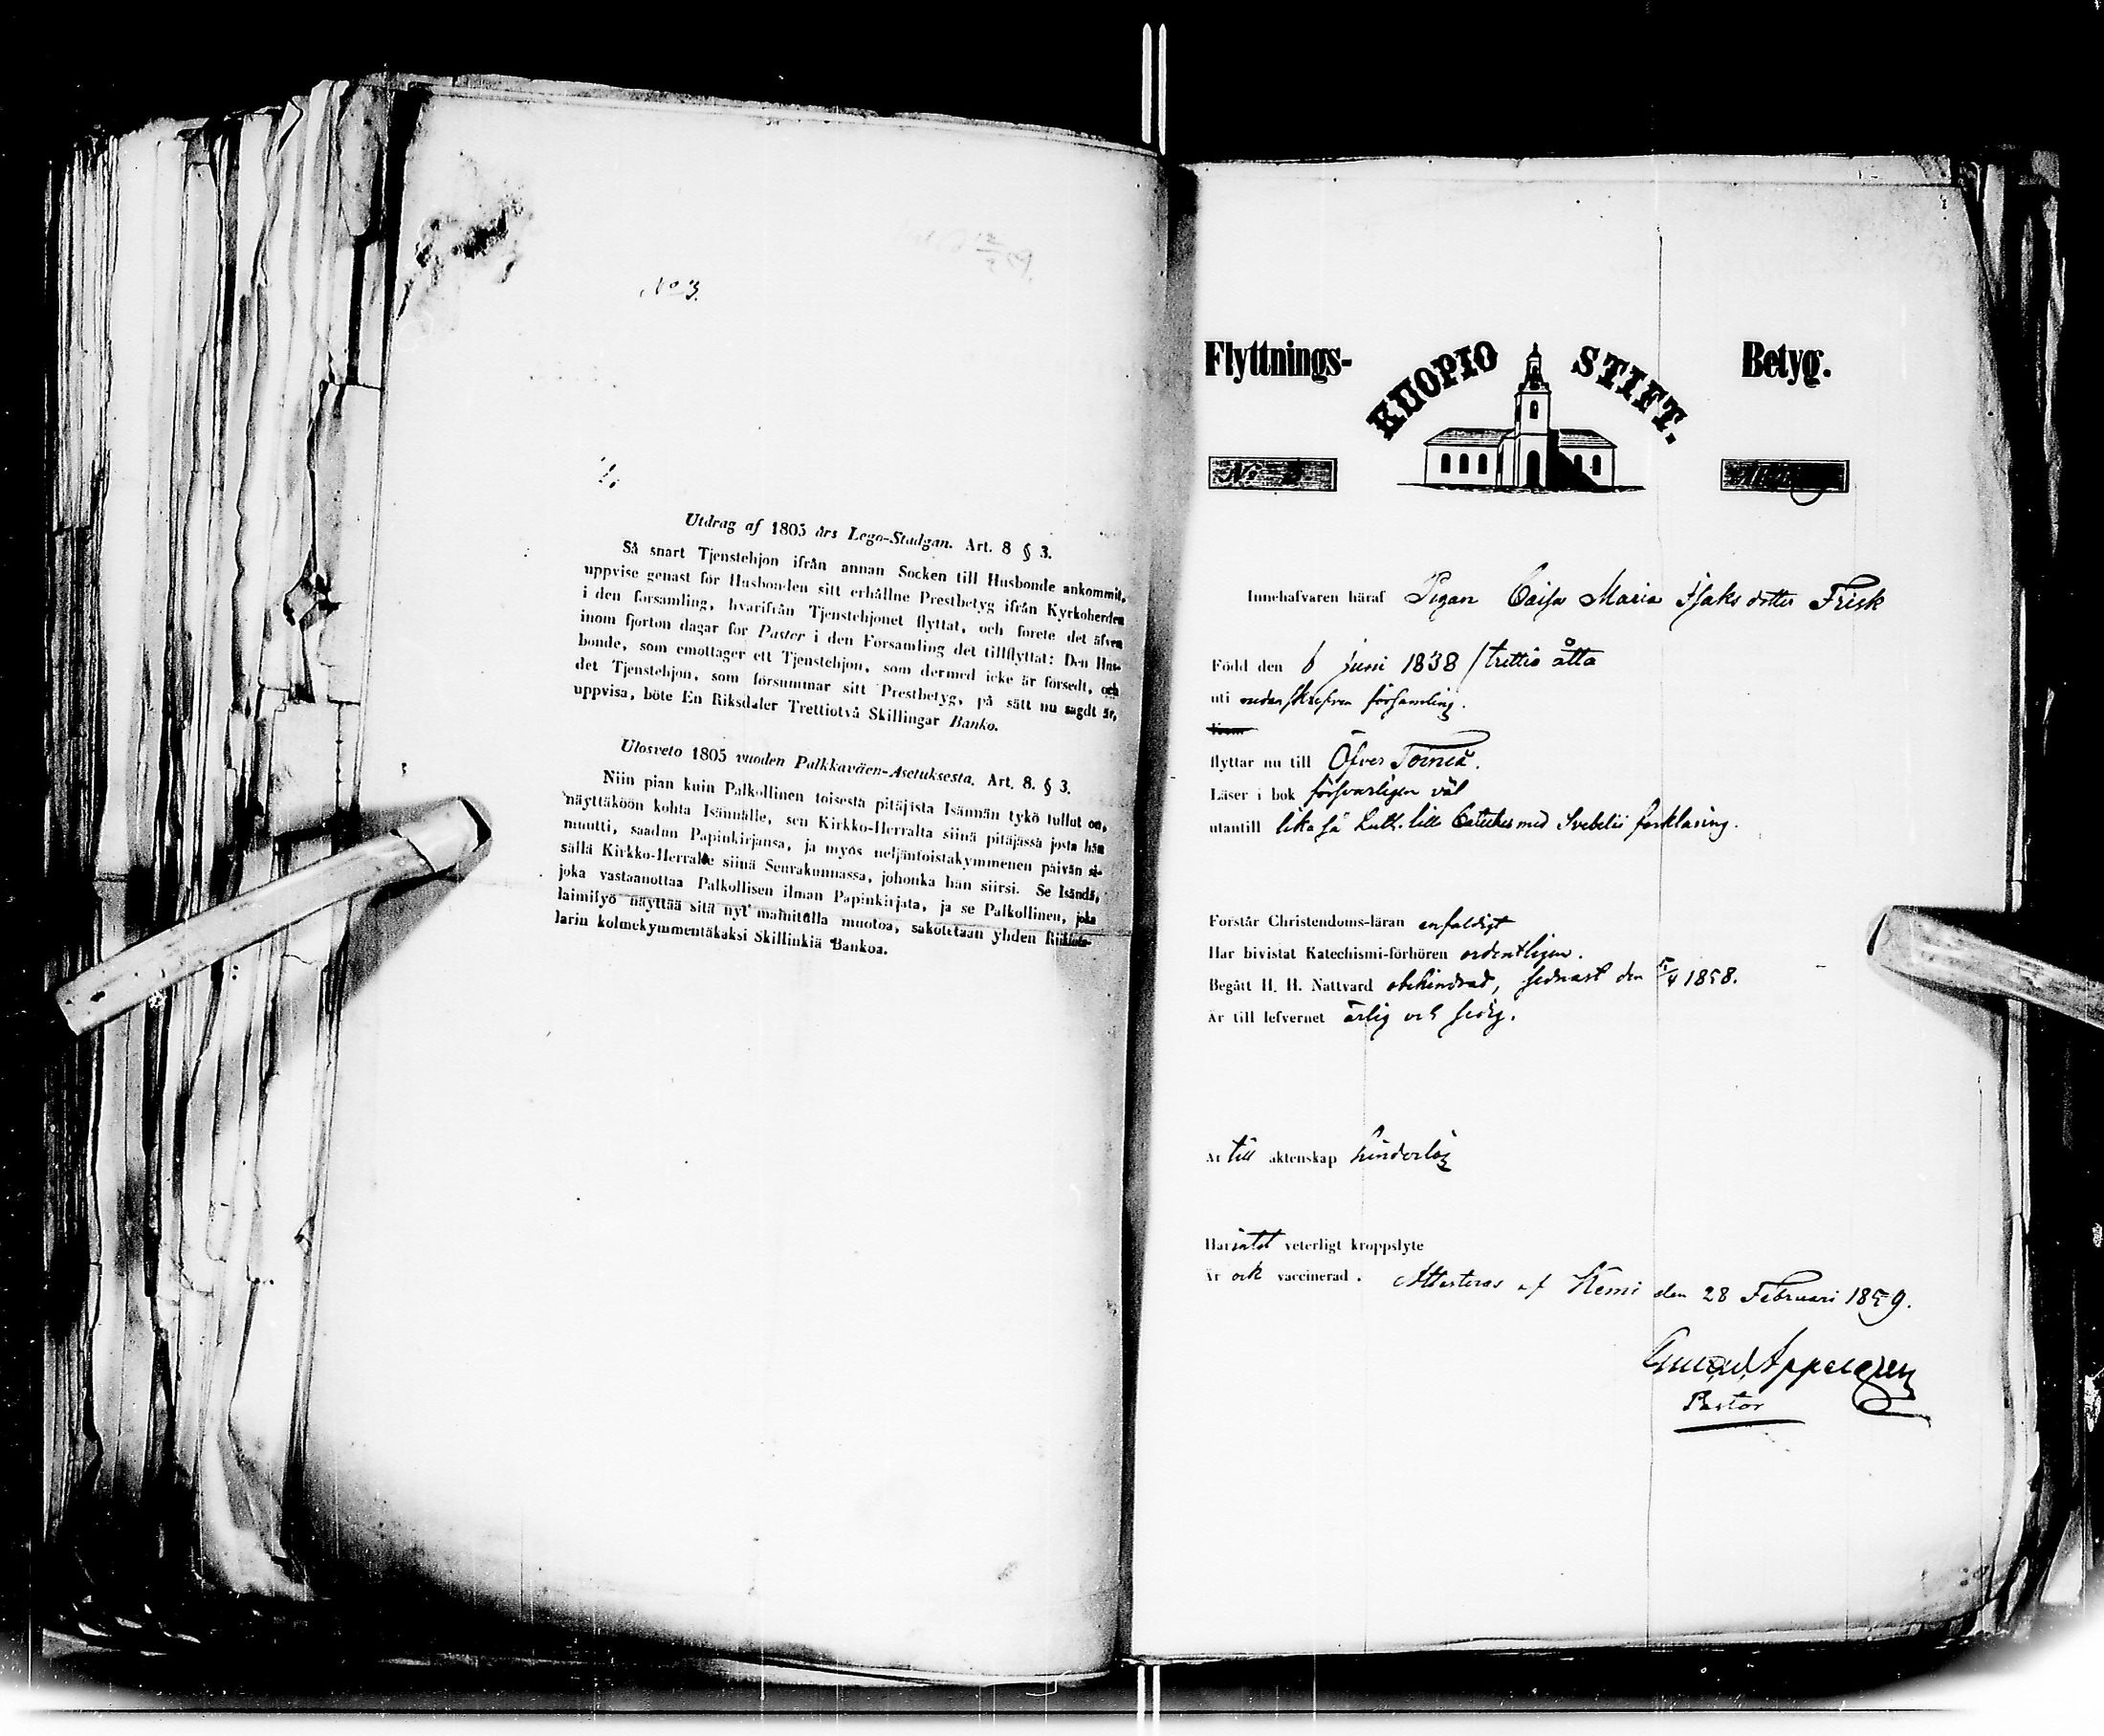 No 3.
Utdrag af 1805 års Lego-Stadgan. Art. 8 § 3.
Så snart Tjenstehjon ifrån annan Socken till Husbonde ankommit,
uppvise genast för Husbonden sitt erhållne Prestbetyg ifrån Kyrkoherden
i den församling, hvarifrån Tjenstehjonet flyttat, och forete det äfven
inom fjorton dagar for Pastor i den Forsamling det tillflyttat: Den Hus-
bonde, som emottager ett Tjenstehjon, som dermed icke är försedt, och
det Tjenstehjon, som försummar sitt Prestbetyg, på sätt nu sagdt är,
uppvisa, böte En Riksdaler Trettiotvå Skillingar Banko.
Ulosveto 1805 vuoden Palkkaväen-Asetuksesta. Art. 8. § 3.
Niin pian kuin Palkollinen toisesta pitäjästa Isännän tykö tullut on,
näyttäköön kohta Isännälle, sen Kirkko-Herralta siinä pitäjässä josta hän
muutti, saadun Papinkirjansa, ja myös neljäntoistakymmenen päivän si-
sällä Kirkko-Herralle siinä Seurakunnassa, johonka hän siirsi. Se Isändä,
joka vastaanottaa Palkollisen ilman Papinkirjata, ja se Palkollinen, joka
laimilyö näyttää sitä nyt mainitulla muotoa, sakotetaan yhden Riikinta-
larin kolmekymmentäkaksi Skillinkiä Bankoa.
Flyttnings- KUOPIO STIFT. Betyg.
No
Innehafvaren häraf Pigan Caisa Maria Isaksdotter Frisk
Född den 6 Juni 1838 / trettio åtta
uti underskrefven församling.
flyttar nu till Öfver Torneå.
Läser i bok försvarligen väl
utantill lika så Luth. lilla Cateches med Svebelii förklaring.
Förstår Christendoms-läran enfaldigt
Har bivistat Katechismi-förhören ordentligen.
Begått H. H. Nattvard obehindrad, sednast den 5/4 1858.
Är till lefvernet ärlig och sedig.
Är till äktenskap hinderlös
Har intet veterligt kroppslyte
Är ock vaccinerad. Attesteras af Kemi den 28 Februari 1859.
Appelgren
Pastor